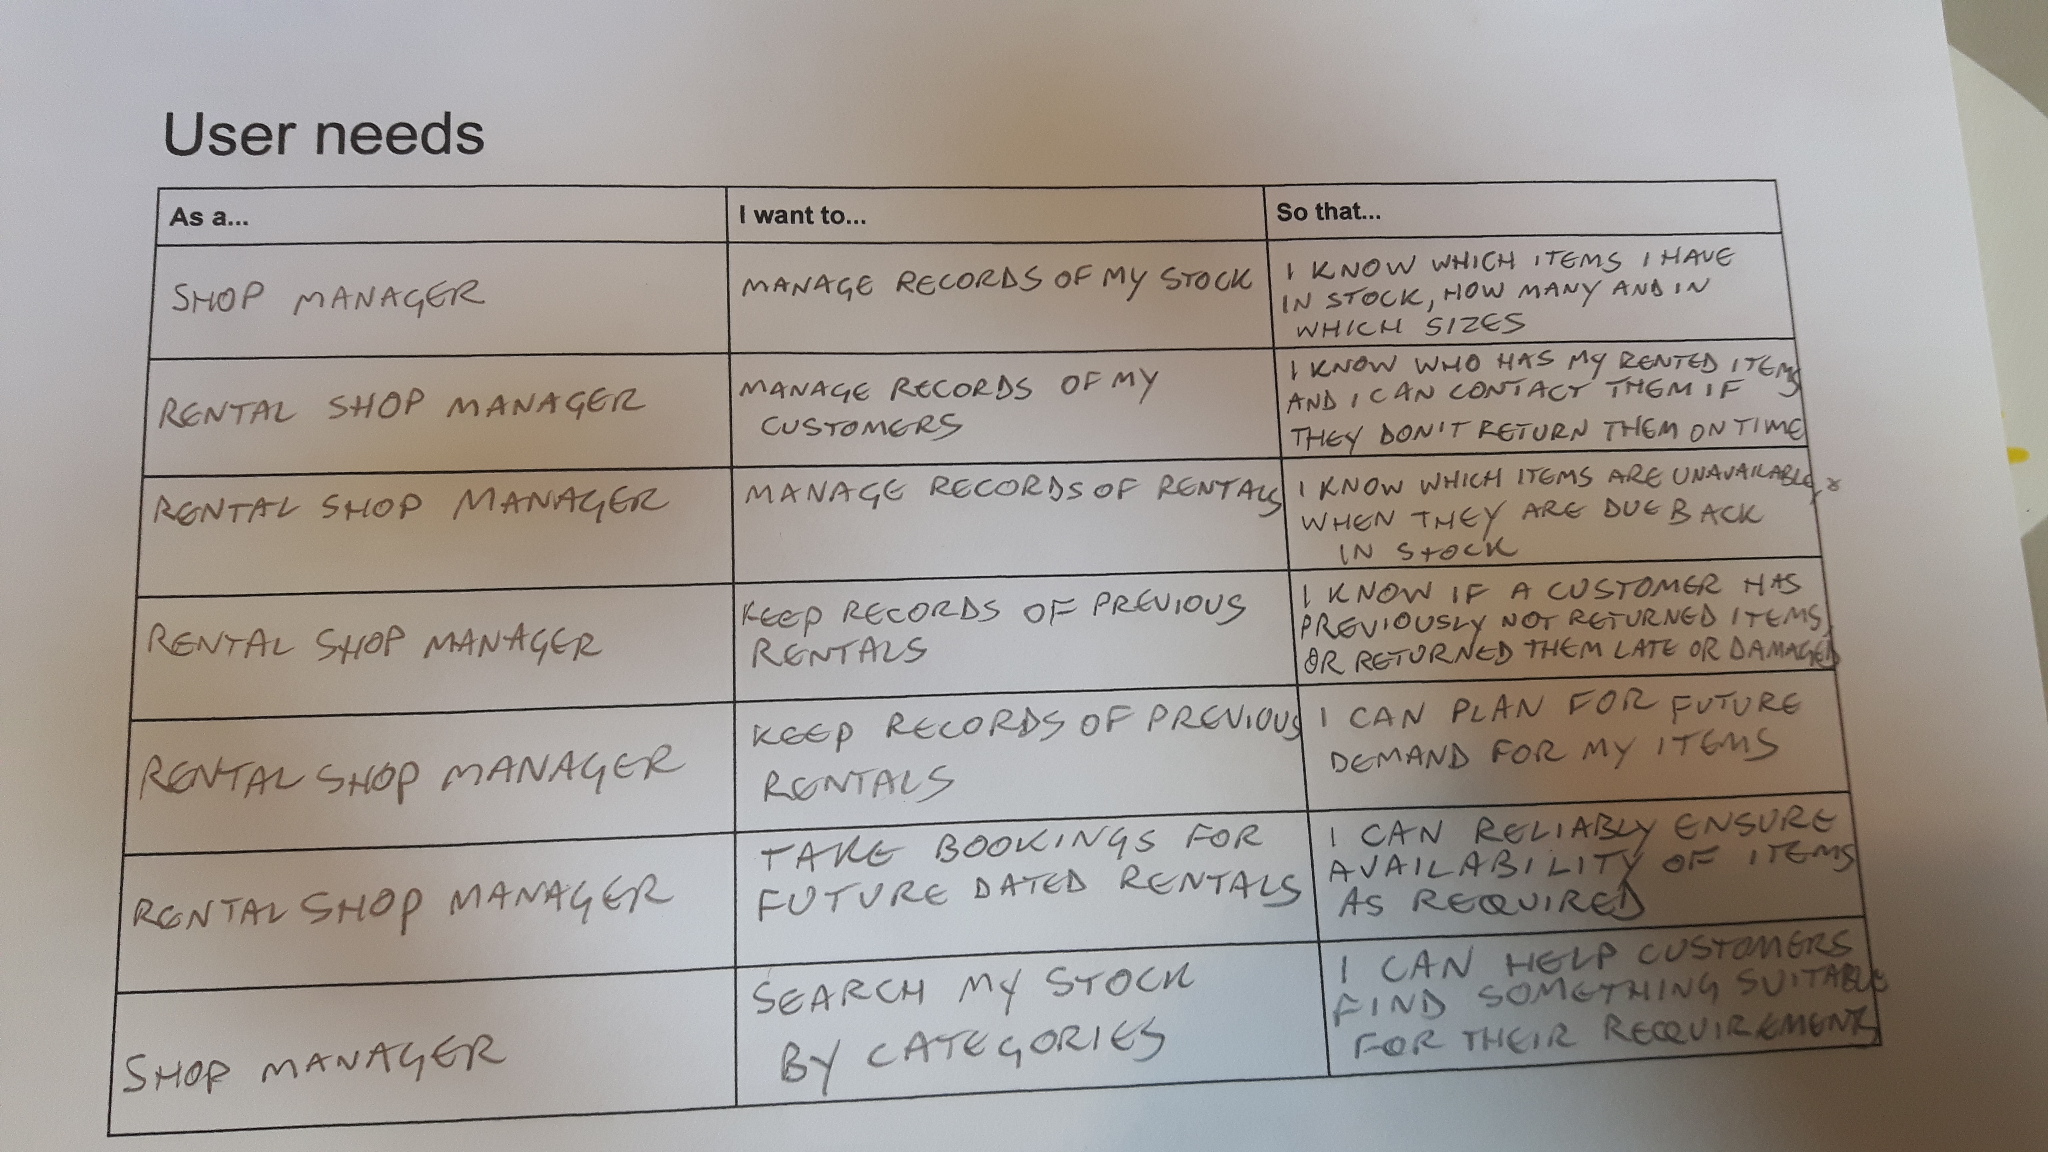 User needs
As a...
I want to...
So that...
SHOP MANAGER
MANAGE RECORDS OF MY STOCK
I KNOW WHICH ITEMS I HAVE
IN STOCK, HOW MANY AND IN
WHICH SIZES
RENTAL SHOP MANAGER
MANAGE RECORDS OF MY
CUSTOMERS
I KNOW WHO HAS MY RENTED ITEMS
AND I CAN CONTACT THEM IF
THEY DON'T RETURN THEM ON TIME
RENTAL SHOP MANAGER
MANAGE RECORDS OF RENTALS
I KNOW WHICH ITEMS ARE UNAVAILABLE, &
WHEN THEY ARE DUE BACK
IN STOCK
RENTAL SHOP MANAGER
KEEP RECORDS OF PREVIOUS
RENTALS
I KNOW IF A CUSTOMER HAS
PREVIOUSLY NOT RETURNED ITEMS,
OR RETURNED THEM LATE OR DAMAGED
RENTAL SHOP MANAGER
KEEP RECORDS OF PREVIOUS
RENTALS
I CAN PLAN FOR FUTURE
DEMAND FOR MY ITEMS
RENTAL SHOP MANAGER
TAKE BOOKINGS FOR
FUTURE DATED RENTALS
I CAN RELIABLY ENSURE
AVAILABILITY OF ITEMS
AS REQUIRED
SHOP MANAGER
SEARCH MY STOCK
BY CATEGORIES
I CAN HELP CUSTOMERS
FIND SOMETHING SUITABLE
FOR THEIR REQUIREMENTS